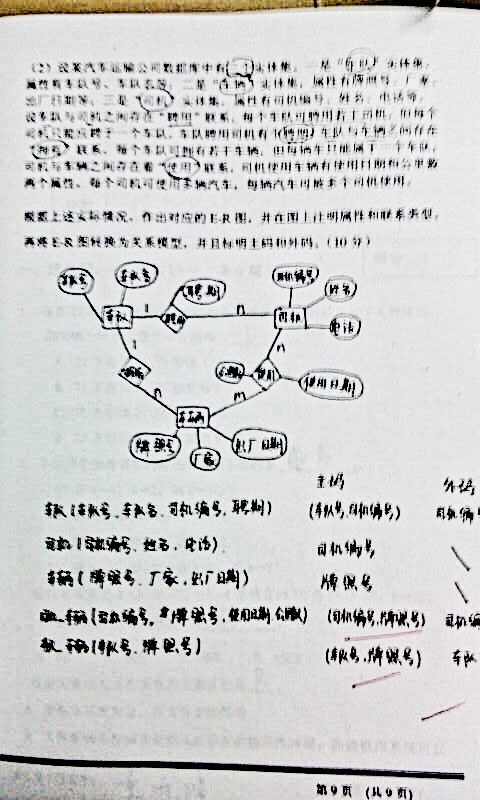 （2）设某汽车运输公司数据库中有三个实体集，一是“车队”实体集，
属性有车队号、车队名等；二是“车辆”实体集，属性有牌照号、厂家、
出厂日期等；三是“司机”实体集，属性有司机编号、姓名、电话等。
设车队与司机之间存在“聘用”联系，每个车队可聘用若干司机，但每个
司机只能应聘于一个车队，车队聘用司机有个聘期；车队与车辆之间存在
联系，每个车队可拥有若干车辆，但每辆车只能属于一个车队；
司机与车辆之间存在着“使用”联系，司机使用车辆有使用日期和公里数
两个属性，每个司机可使用多辆汽车，每辆汽车可被多个司机使用。
根据上述实际情况，作出对应的E-R图，并在图上注明属性和联系类型，
再将E-R图转换为关系模型，并且标明主码和外码。（10分）
车队号 车队名 聘期 司机编号 姓名
车队 1 聘用 n 司机 电话
1 n
使用 使用日期
n m
车辆
牌照号 厂家 出厂日期
主码 外码
车队（车队号、车队名、司机编号、聘期） （车队号、司机编号） 司机编
司机（司机编号、姓名、电话） 司机编号
车辆（牌照号、厂家、出厂日期） 牌照号
车辆（司机编号、牌照号、使用日期、公里数） （司机编号、牌照号） 司机编
车辆（车队号、牌照号） （车队号、牌照号） 车队
第9页 （共9页）